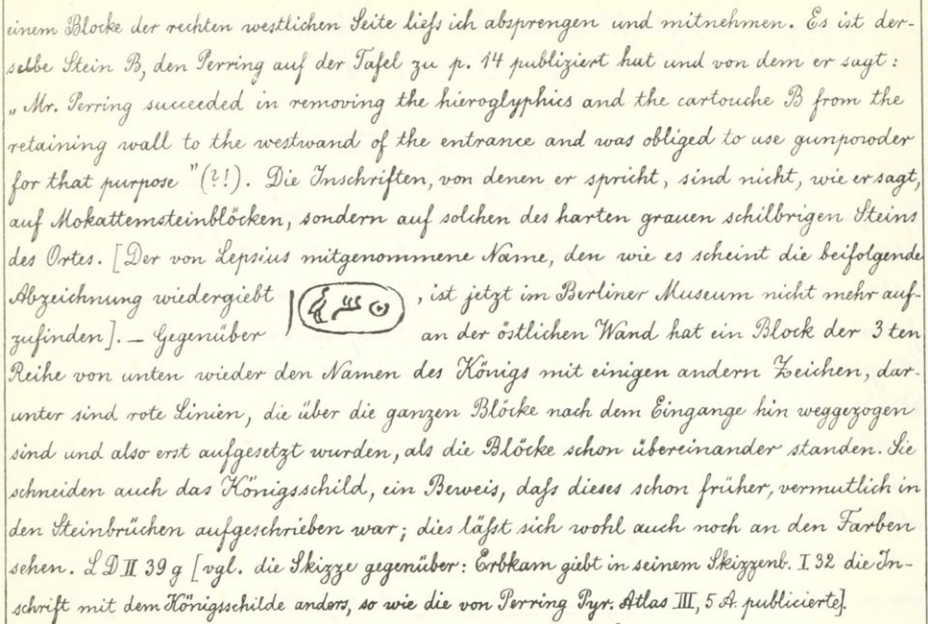 einem Blocke der rechten westlichen Seite ließ ich absprengen und mitnehmen. Es ist der-
selbe Stein B, den Perring auf der Tafel zu p. 14 publiziert hat und von dem er sagt:
„Mr. Perring succeeded in removing the hieroglyphics and the cartouche B from the
retaining wall to the westwand of the entrance and was obliged to use gunpowder
for that purpose" (?!). Die Inschriften, von denen er spricht, sind nicht, wie er sagt,
auf Mokattemsteinblöcken, sondern auf solchen des harten grauen schilbrigen Steins
des Ortes. [Der von Lepsius mitgenommene Name, den wie es scheint die beifolgende
Abzeichnung wiedergiebt , ist jetzt im Berliner Museum nicht mehr auf-
zufinden]. — Gegenüber an der östlichen Wand hat ein Block der 3ten
Reihe von unten wieder den Namen des Königs mit einigen andern Zeichen, dar-
unter sind rote Linien, die über die ganzen Blöcke nach dem Eingange hin weggezogen
sind und also erst aufgesetzt wurden, als die Blöcke schon übereinander standen. Sie
schneiden auch das Königsschild, ein Beweis, daß dieses schon früher, vermutlich in
den Steinbrüchen aufgeschrieben war; dies läßt sich wohl auch noch an den Farben
sehen. L D II 39 g [vgl. die Skizze gegenüber: Erbkam giebt in seinem Skizzenb. I. 32 die In-
schrift mit dem Königsschilde anders, so wie die von Perring Pyr. Atlas III, 5 A. publicierte].